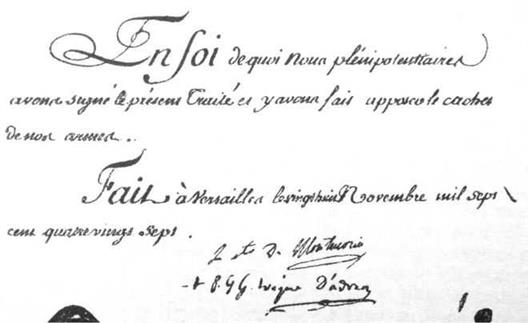 En foi de quoi Nous plénipotentiaires
avons signé le présent Traité et y avons fait apposer le cachet
de nos armes.
Fait à Versailles le vingt huit Novembre mil sept
cent quatre vingt sept.
L. cte D. Montmorin
+ P. J. G. Evêque D'adran